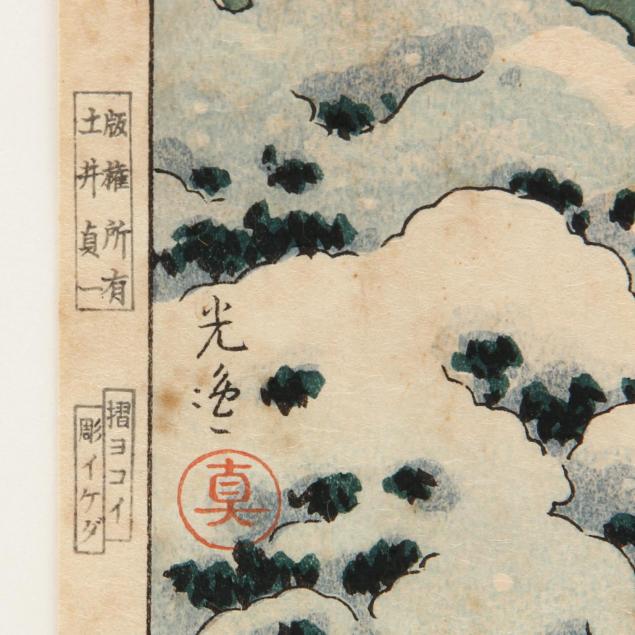 版権所有
土井貞一
光逸
真
摺ヨコイ
彫イケダ